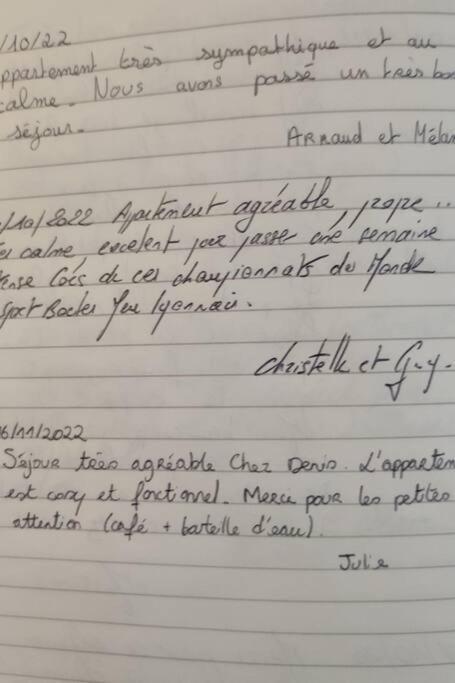 /10/22
ppartement très sympathique et au
calme. Nous avons passé un très bon
séjour.
Arnaud et Mélan
/10/2022 Appartement agréable, prope...
calme, excelent pour passer une semaine
ense lors de ces championnats du Monde
Sport Boules Jeu lyonnais.
Christelle et Guy.
6/11/2022
Séjour très agréable chez Denis. L'appartem
est cosy et fonctionnel. Merci pour les petites
attention (café + bouteille d'eau).
Julie